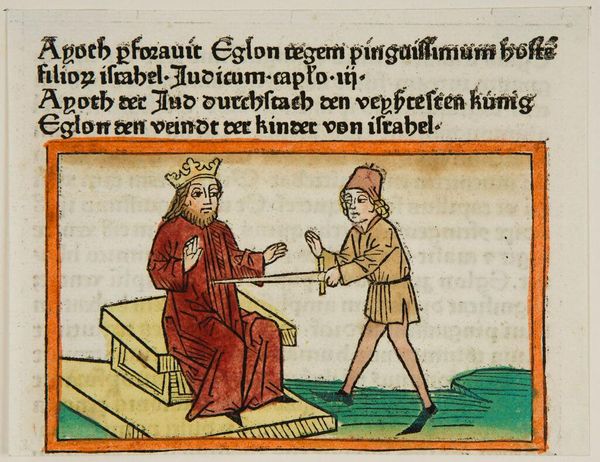 Ayoth ꝑforavit Eglon regem pinguissimum hostē
filioꝝ israhel. Judicum capło iij.
Ayoth der Jud durchstach den veyhtesten künig
Eglon den veindt der kinder von israhel.